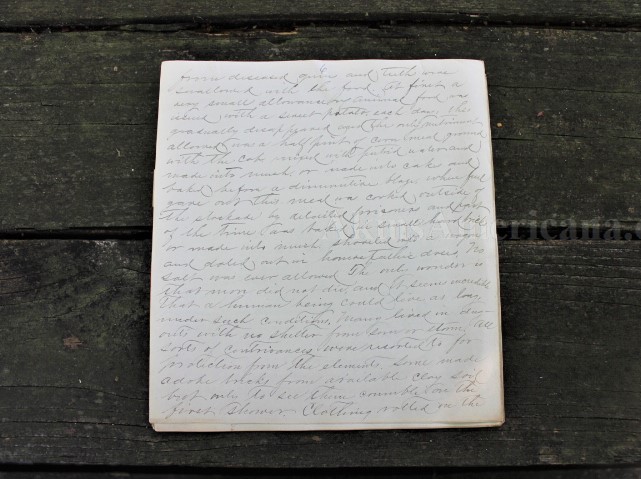 from diseased gums and teeth was
swallowed with the food. At first a
very small allowance of animal food was
issued with a sweet potato each day, this
gradually disappeared and the only nutriment
allowed was a half pint of corn meal ground
with the cob mixed with putrid water and
made into mush or made into cake and
baked before a diminutive blaze, when fuel
gave out this meal was cooked outside of
the stockade by detailed prisoners and part
of the time was baked in small hard loaf
or made into mush shoveled
and doled out in homeopathic doses, No
salt was ever allowed The only wonder is
that more did not die and it seems
that a human being could live as long
under such conditions, Many lived in dug
outs with no shelter from sun or storm, All
sorts of contrivances were resorted to for
protection from the elements, Some made
adobe bricks from available clay soil
but only to see them crumble at the
first shower. Clothing rotted on the
Americana.c